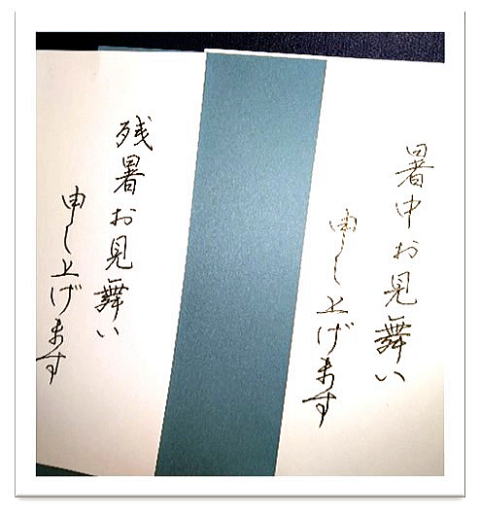 暑中お見舞い
申し上げます
残暑お見舞い
申し上げます